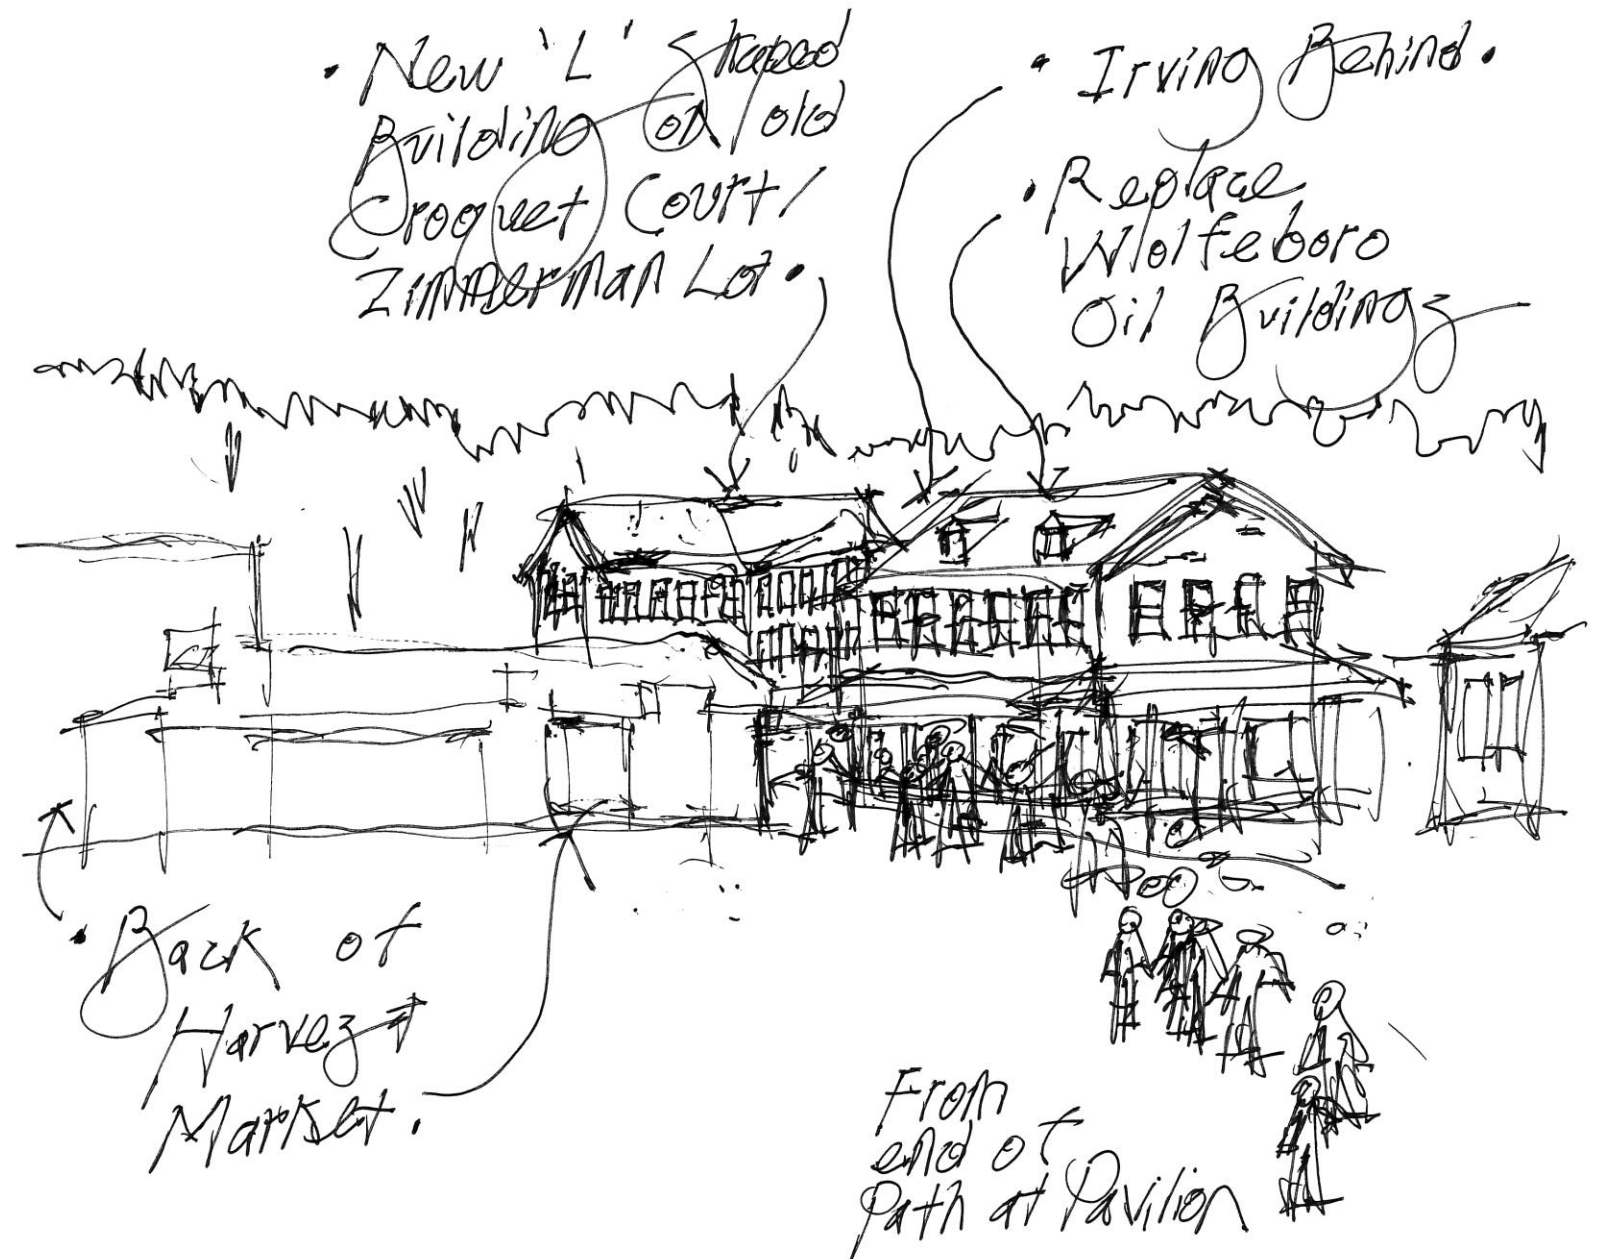 • New 'L' Shaped
Building on old
Croquet Court/
Zimmerman Lot.
• Irving Behind.
• Replace
Wolfeboro
Oil Buildings
• Back of
Harvest
Market.
From
end of
Path at Pavilion